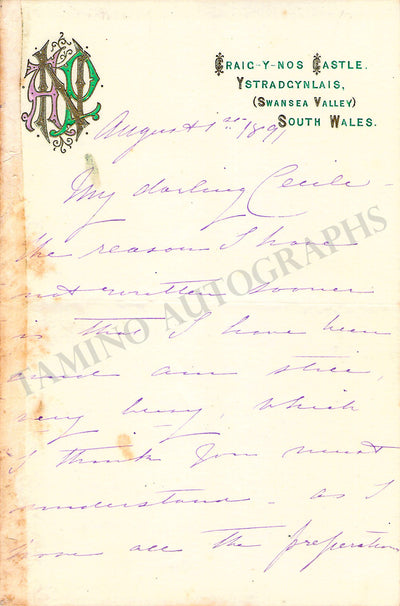 ANP
Craig-y-nos Castle.
Ystradgynlais,
(Swansea Valley)
South Wales.
August 1st 1891
My darling Cecile -
the reason I have
not written sooner
is that I have been
and am still
very busy, which
I think you must
understand - as I
have all the preparation
TAMINO AUTOGRAPHS